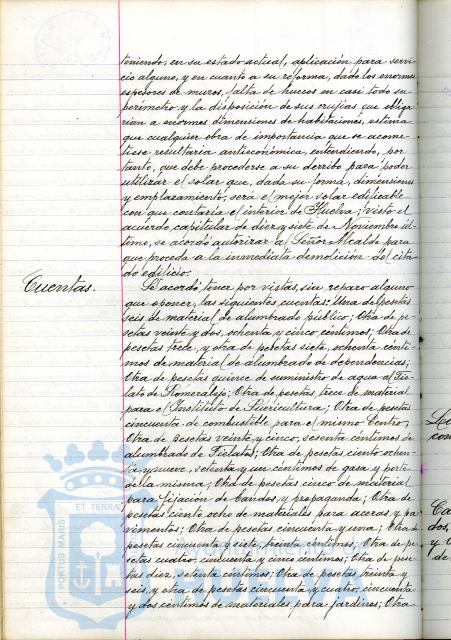 teniendo, en su estado actual, aplicación para servi
cio alguno, y en cuanto a su reforma, dado los enormes
espesores de muros, falta de huecos en casi todo su
perímetro y la disposición de sus crujías que obliga
rían a enormes dimensiones de habitaciones, estima
que cualquier obra de importancia que se acome
tiese resultaría antieconómica, entendiendo, por
tanto, que debe procederse a su derribo para poder
utilizar el solar que, dada su forma, dimensiones
y emplazamiento, será el mejor solar edificable
con que contaría el interior de Huelva; visto el
acuerdo capitular de diez y siete de Noviembre úl
timo, se acordó autorizar al Señor Alcalde para
que proceda a la inmediata demolición del cita
do edificio.
Cuentas.
Se acordó tener por vistas, sin reparo alguno
que oponer, las siguientes cuentas: Una de pesetas
seis de material de alumbrado público; Otra de pe
setas veinte y dos, ochenta y cinco céntimos; Otra de
pesetas trece, y otra de pesetas siete, ochenta cénti
mos de material de alumbrado de dependencias;
Otra de pesetas quince de suministro de agua al Fie
lato de Romeralejo; Otra de pesetas trece de material
para el Instituto de Puericultura; Otra de pesetas
cincuenta de combustible para el mismo Centro;
Otra de pesetas veinte y cinco, sesenta céntimos de
alumbrado de Fielatos; Otra de pesetas ciento ochen
ta y nueve, setenta y un céntimos de gasa y porte
de la misma; Otra de pesetas cinco de material
para fijación de bandos y propaganda; Otra de
pesetas ciento ocho de materiales para aceras y pa
vimentos; Otra de pesetas cincuenta y una; Otra de
pesetas cincuenta y siete, treinta céntimos; Otra de pe
setas cuatro, cincuenta y cinco céntimos; Otra de pese
tas diez, setenta céntimos; Otra de pesetas treinta y
seis, y otra de pesetas cincuenta y cuatro, cincuenta
y dos céntimos de materiales para jardines; Otra
ET TERRA
PORTUS MARIS